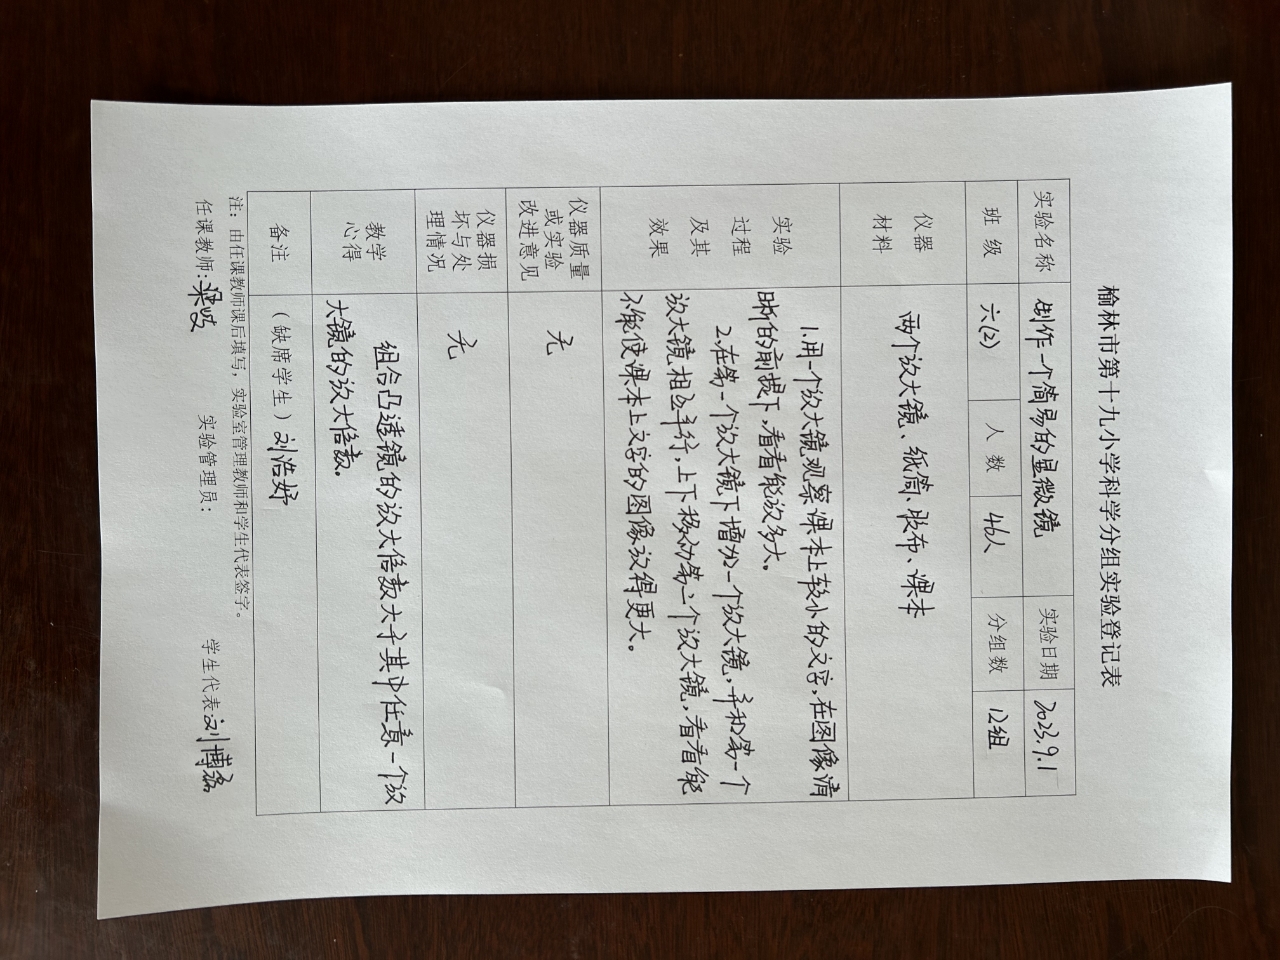 榆林市第十九小学科学分组实验登记表
实验名称 制作一个简易的显微镜 实验日期 2023.9.1
班级 六(2) 人数 46人 分组数 12组
仪器
材料
两个放大镜、纸筒、胶布、课本
实验
过程
及其
效果
1.用一个放大镜观察课本上较小的文字,在图像清
晰的前提下,看看能放多大。
2.在第一个放大镜下增加一个放大镜,并和第一个
放大镜相互平行,上下移动第二个放大镜,看看能
不能使课本上文字的图像放得更大。
仪器质量
或实验
改进意见
无
仪器损
坏与处
理情况
无
教学
心得
组合凸透镜的放大倍数大于其中任意一个放
大镜的放大倍数。
备注 (缺席学生)刘浩妤
注:由任课教师课后填写,实验室管理教师和学生代表签字。
任课教师:梁 实验管理员: 学生代表:刘博磊